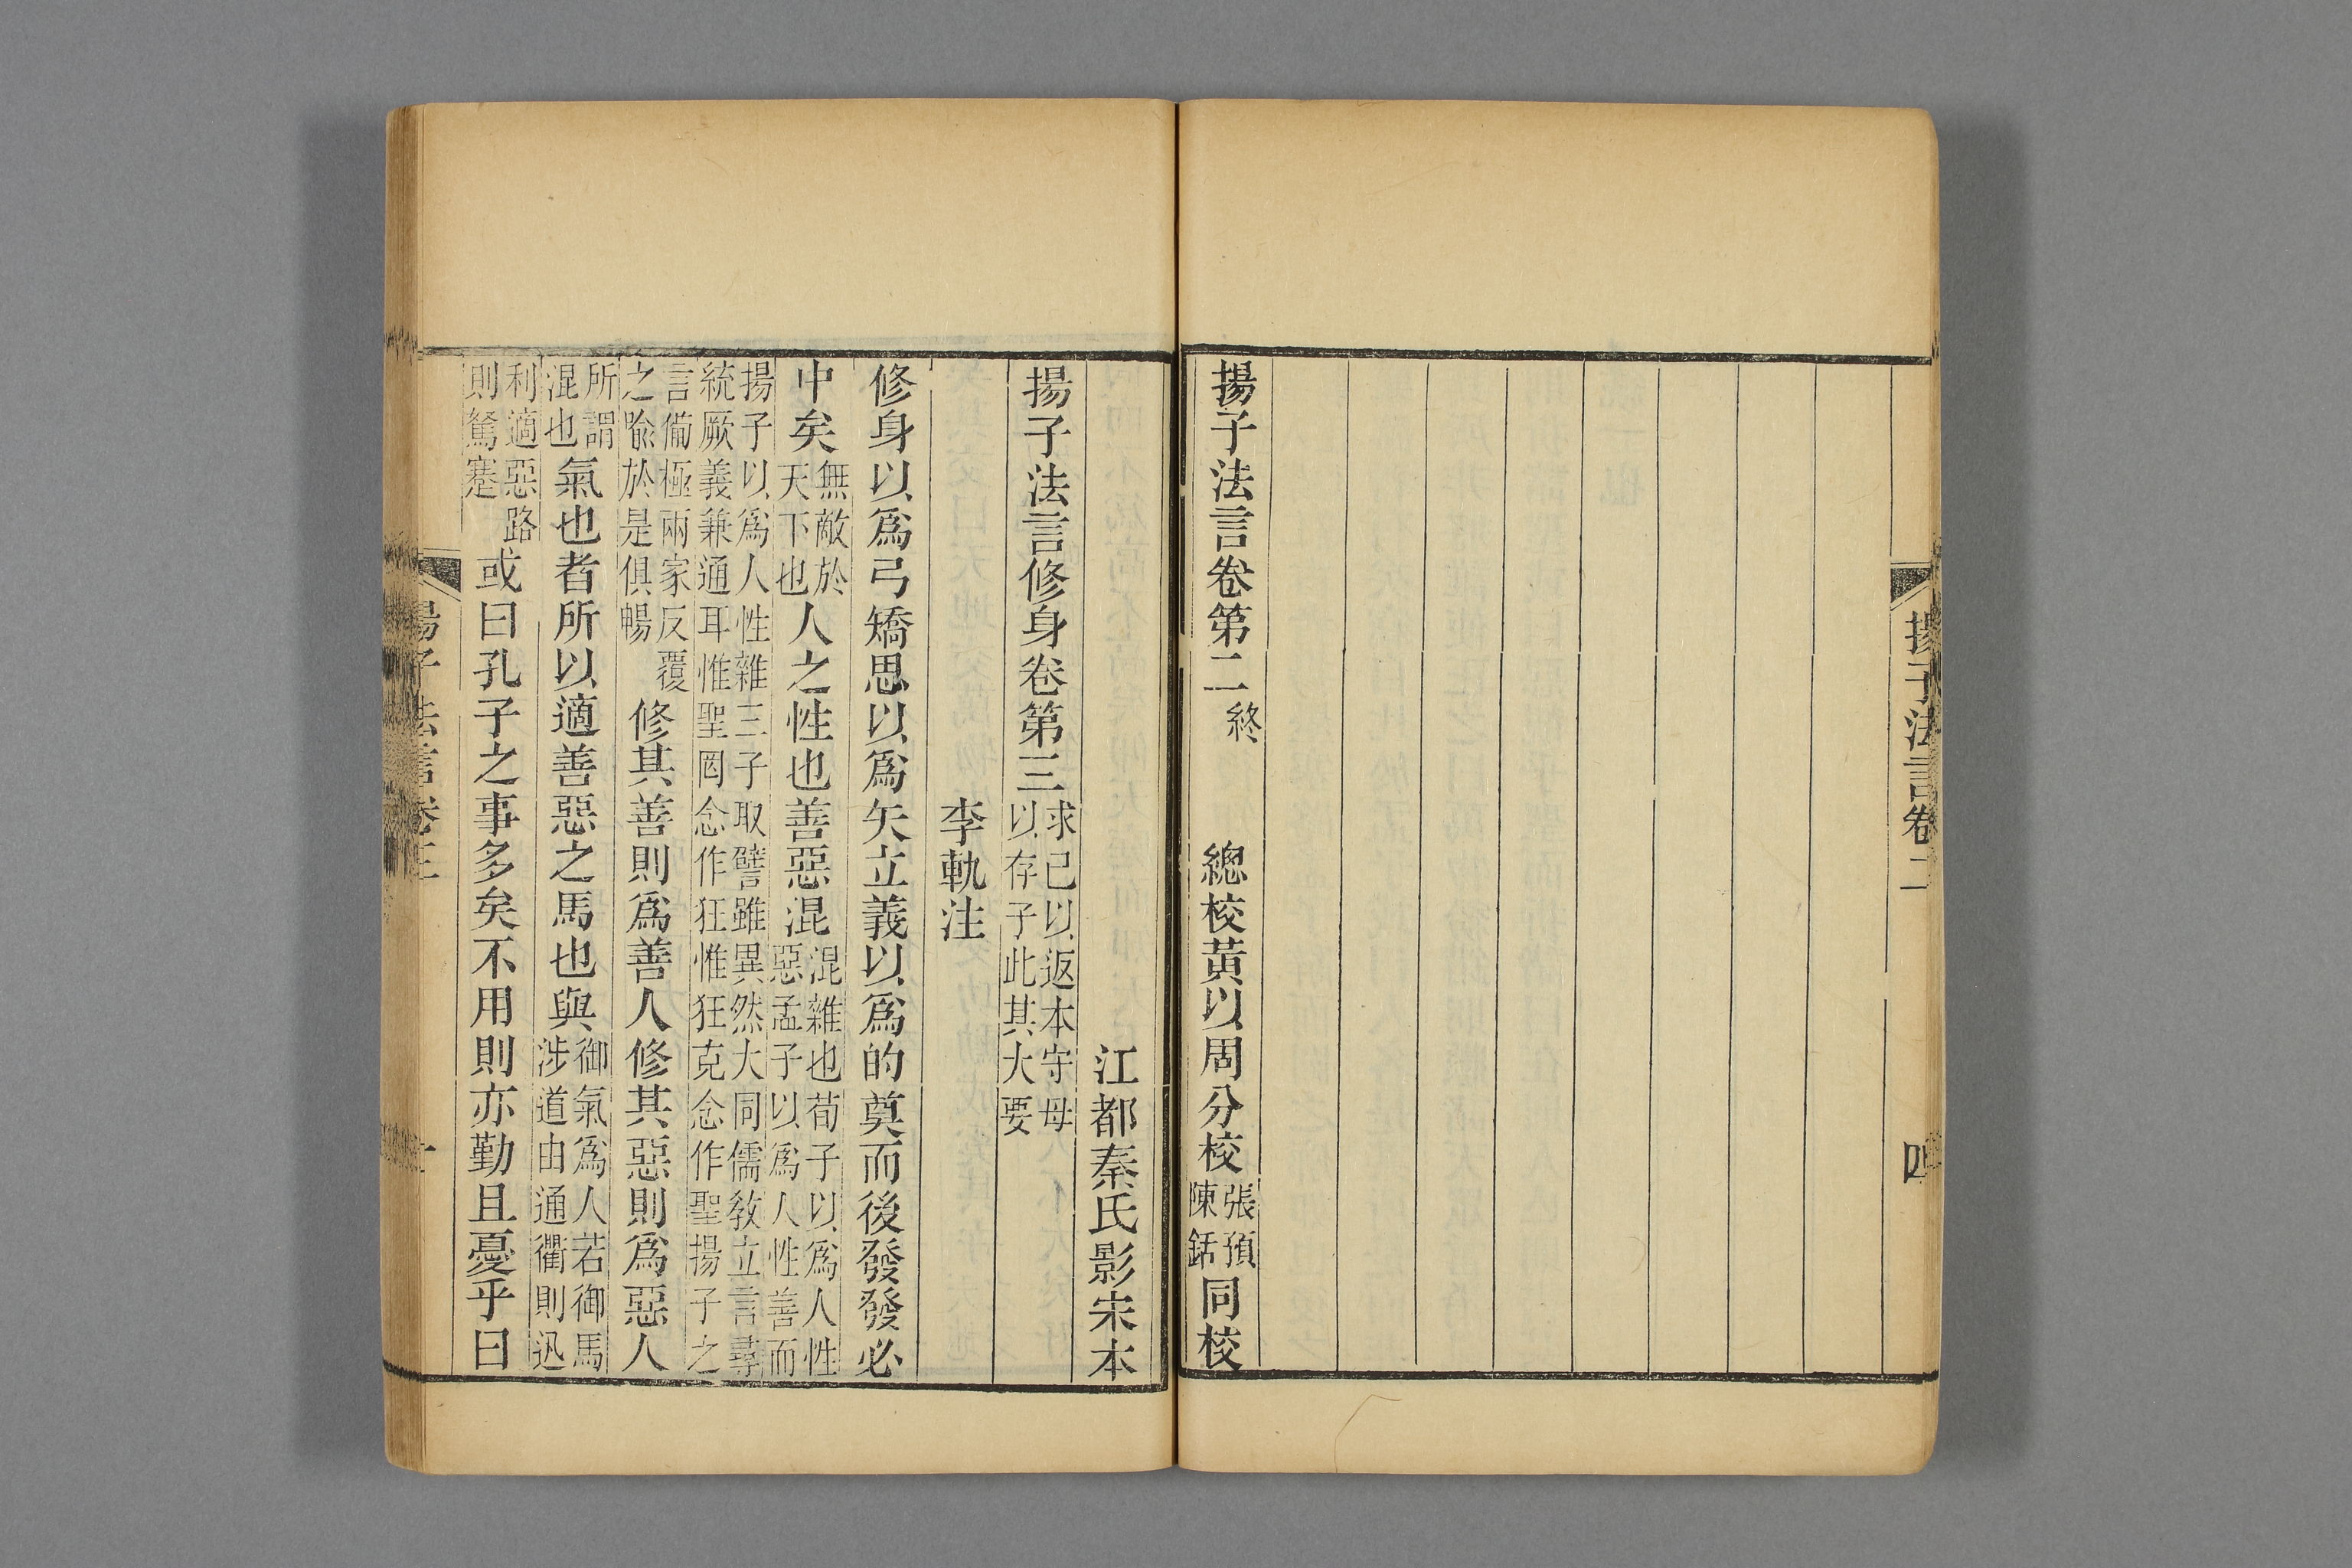 揚子法言卷二
四
揚子法言卷第二終 總校黃以周分校張預陳銛同校
江都秦氏影宋本
揚子法言修身卷第三求己以返本守母以存子此其大要
李軌注
修身以爲弓矯思以爲矢立義以爲的奠而後發發必
中矣無敵於天下也人之性也善惡混混雜也荀子以爲人性惡孟子以爲人性善而
揚子以爲人性雜三子取譬雖異然大同儒敎立言尋統厥義兼通耳惟聖罔念作狂惟狂克念作聖揚子之
言備極兩家反覆之喩於是俱暢修其善則爲善人修其惡則爲惡人
所謂混也氣也者所以適善惡之馬也與御氣爲人若御馬涉道由通衢則迅
利適惡路則駑蹇或曰孔子之事多矣不用則亦勤且憂乎曰
揚子法言卷三
一